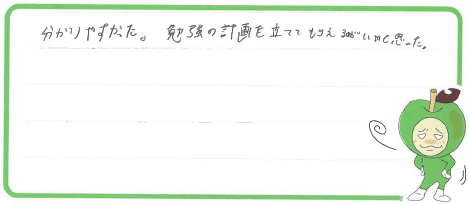 分かりやすかった。勉強の計画を立ててもらえるのがいいなと思った。